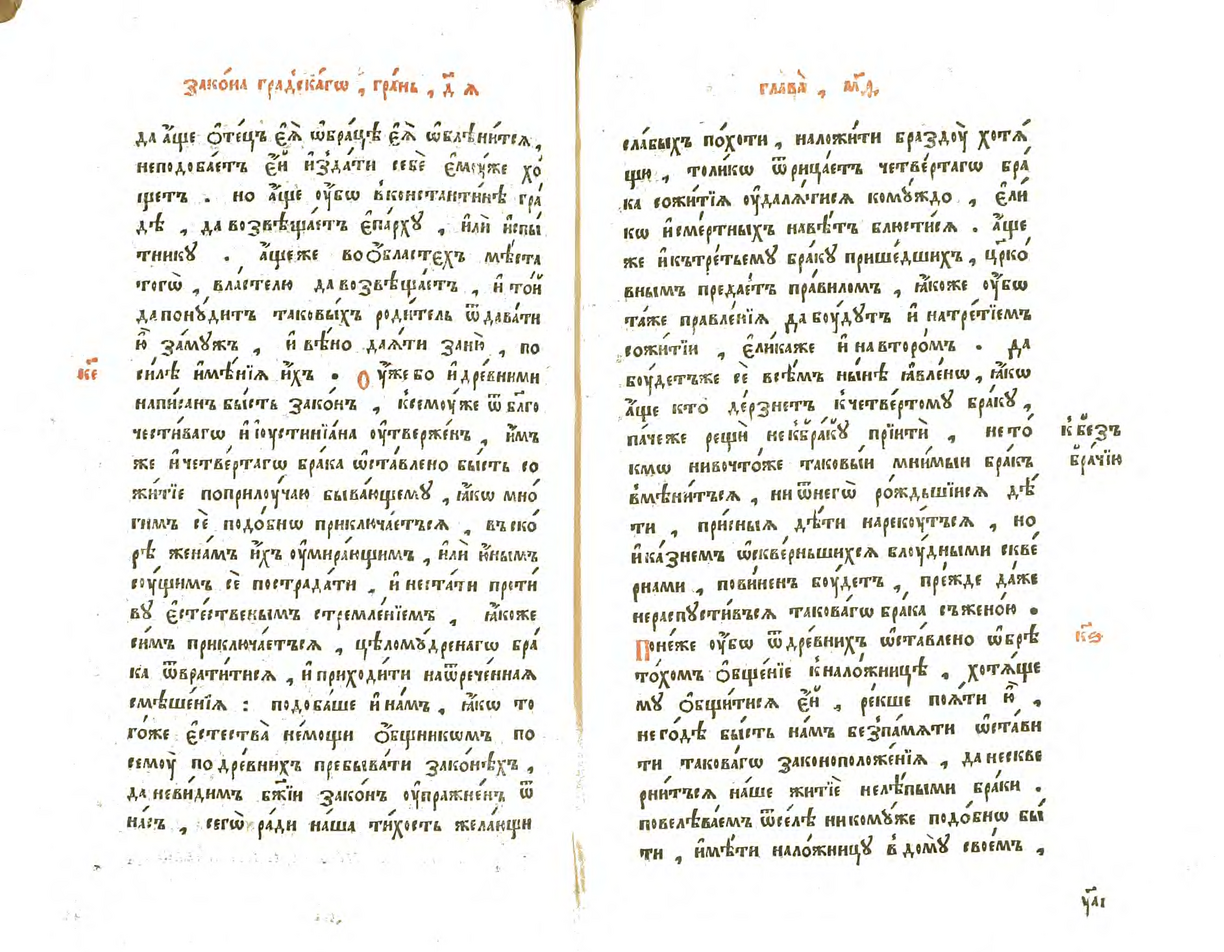 Зако́на гра́дскагѡ , гра́нь , д҃ ѧ
да а҆́ще ѻ҆те́цъ є҆ѧ̀ ѡ҆бра́цѣ є҆ѧ̀ ѡ҆блѣни́тсѧ ,
неподоба́етъ є҆́й и҆зда́ти себѐ є҆мꙋ́же хо́
щетъ . но а҆́ще ᲂу҆́бѡ вконстанти́нѣ гра́
дѣ , да возвѣща́етъ є҆па́рхꙋ , и҆лѝ и҆спы́
тникꙋ . а҆́щеже воѻ҆́бластехъ мѣ́ста
тогѡ̀ , вла́стелю да возвѣща́етъ , и҆ то́й
да понꙋ́дитъ таковы́хъ роди́тель ѿдава́ти
ю҆̀ за́мꙋжъ , и҆ вѣ́но даѧ́ти за ню̀ , по
си́лѣ и҆мѣ́нїѧ и҆́хъ .
к҃є
Ѻ᲋у҆́же бо и҆ дре́вними
напи́санъ бы́сть зако́нъ , ксемꙋ́же ѿ бл҃го
чести́вагѡ и҆ і҆ꙋстинїа́на ᲂу҆твержде́нъ , и҆́мъ
же и҆ четве́ртагѡ бра́ка ѡ҆ста́влено бы́сть со
жи́тїе поприлꙋ́чаю быва́ющемꙋ , ꙗ҆́кѡ мно́
гимъ сѐ подо́бнѡ приключа́етсѧ , въ ско́
рѣ жена́мъ и҆́хъ ᲂу҆мира́ющимъ , и҆лѝ ю҆́нымъ
сꙋ́щимъ сѐ пострада́ти , и҆ неста́ти проти́
вꙋ є҆сте́ственымъ стремле́нїемъ , ꙗ҆́коже
си́мъ приключа́етсѧ , цѣломꙋ́дренагѡ бра́
ка ѿврати́тисѧ , и҆ приходи́ти наѿрече́ннаѧ
смѣше́нїѧ : подоба́ше и҆ на́мъ , ꙗ҆́кѡ то
го́же є҆стества̀ не́мощи ѻ҆́бщникѡмъ по
семꙋ̀ по дре́внихъ пребыва́ти зако́нѣхъ ,
да неви́димъ бж҃їй зако́нъ ᲂу҆пражне́нъ ѿ
на́съ , сегѡ̀ ра́ди на́ша ти́хость жела́ющи
глава̀ , м҃ѳ ,
сла́быхъ по́хоти , наложи́ти бразду̀ хотѧ́
щи , толи́кѡ ѿрица́етъ четве́ртагѡ бра́
ка сожи́тїѧ ᲂу҆далѧ́тисѧ комꙋ́ждо , є҆ли́
кѡ и҆ сме́ртныхъ навѣ́тъ блюсти́сѧ . а҆́ще
же и҆ ктре́тьемꙋ бра́кꙋ прише́дшихъ , цр҃ко́
внымъ предае́тъ пра́виломъ , ꙗ҆́коже ᲂу҆́бѡ
та́же правле́нїѧ да бꙋ́дꙋтъ и҆ натре́тїемъ
сожи́тїи , є҆ли́каже и҆ на второ́мъ . да
бꙋ́детъже сѐ всѣ́мъ ны́нѣ ꙗ҆вле́нѡ , ꙗ҆́кѡ
а҆́ще кто̀ де́рзнетъ кчетве́ртомꙋ бра́кꙋ ,
па́чеже рещѝ не кбра́кꙋ прїитѝ , не то́
к безъ
бра́чїю
кмѡ нивочто́же таковы́й мни́мый бра́къ
вмѣни́тсѧ , ни ѿ негѡ̀ ро́ждьшїисѧ дѣ́
ти , при́сныѧ дѣ́ти нареку́тсѧ , но
и҆ ка́знемъ ѡ҆скве́рньшихсѧ блꙋ́дными скве́
рнами , пови́ненъ бꙋ́детъ , пре́жде да́же
нераспꙋсти́всѧ такова́гѡ бра́ка съ жено́ю .
к҃ѕ
Поне́же ᲂу҆́бѡ ѿ дре́внихъ ѡ҆ста́влено ѡ҆брѣ
то́хомъ ѻ҆бще́нїе кнало́жницѣ , хотѧ́ще
мꙋ ѻ҆бщи́тисѧ є҆́й , ре́кше поѧ́ти ю҆̀ ,
не го́дѣ бы́сть на́мъ безпа́мѧти ѡ҆ста́ви
ти такова́гѡ законоположе́нїѧ , да нескве
рни́тсѧ на́ше житїѐ нелѣ́пыми бра́ки .
повелѣва́емъ ѿсе́лѣ никомꙋ́же подо́бнѡ бы́
ти , и҆мѣ́ти нало́жницꙋ в домꙋ̀ свое́мъ ,